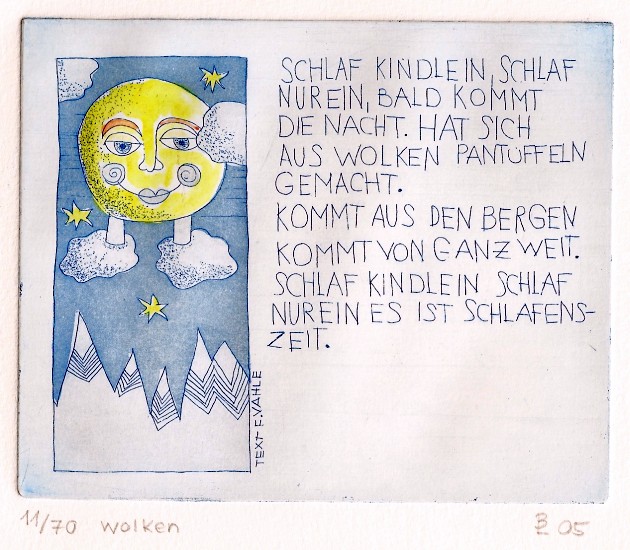 SCHLAF KINDLEIN, SCHLAF
NUR EIN, BALD KOMMT
DIE NACHT. HAT SICH
AUS WOLKEN PANTÜFFELN
GEMACHT.
KOMMT AUS DEN BERGEN
KOMMT VON GANZ WEIT.
SCHLAF KINDLEIN SCHLAF
NUR EIN ES IST SCHLAFENS-
ZEIT.
TEXT F. VAHLE
11/70 Wolken
05